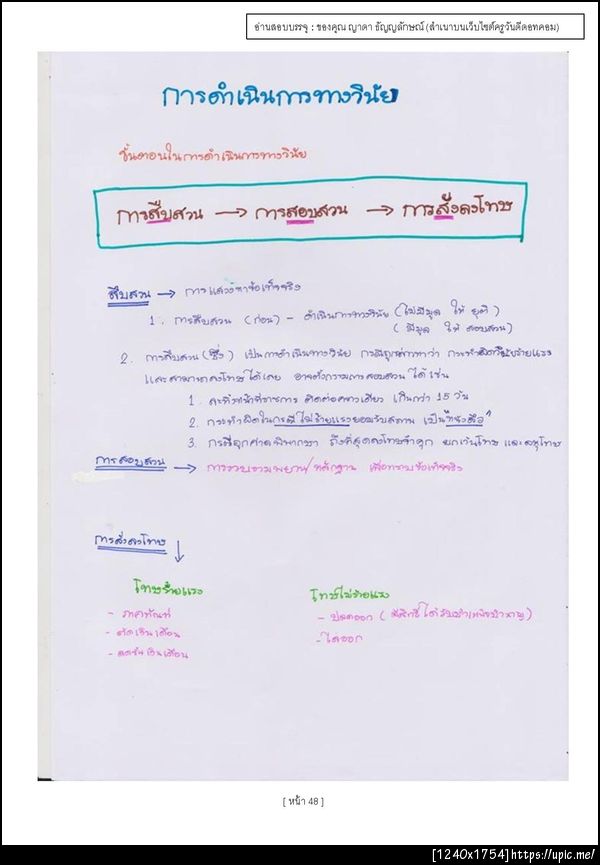 อ่านสอบบรรจุ : ของคุณ ญาดา ธัญญลักษณ์ (สำเนาบนเว็บไซต์ครูวันดีดอทคอม)
การดำเนินการทางวินัย
ขั้นตอนในการดำเนินการทางวินัย
การสืบสวน → การสอบสวน → การสั่งลงโทษ
สืบสวน → การแสวงหาข้อเท็จจริง
1. การสืบสวน (ก่อน) - ดำเนินการทางวินัย (ไม่มีมูล ให้ ยุติ)
(มีมูล ให้ สอบสวน)
2. การสืบสวน (ซึ่ง) เป็นการดำเนินการทางวินัย กรณีถูกกล่าวหาว่า กระทำผิดวินัยร้ายแรง
และสามารถลงโทษได้เลย อาจตั้งกรรมการสอบสวน ได้ เช่น
1. ละทิ้งหน้าที่ราชการ ติดต่อคราวเดียว เกินกว่า 15 วัน
2. กระทำผิดในกรณีไม่ร้ายแรงยอมรับสภาพ เป็น"หนังสือ"
3. กรณีถูกศาลพิพากษา ถึงที่สุดลงโทษจำคุก ยกเว้นโทษ และลหุโทษ
การสอบสวน → การรวบรวมพยาน/หลักฐาน เพื่อทราบข้อเท็จจริง
การสั่งลงโทษ ↓
โทษร้ายแรง
- ภาคทัณฑ์
- ตัดเงินเดือน
- ลดขั้นเงินเดือน
โทษไม่ร้ายแรง
- ปลดออก (มีสิทธิ์ได้รับบำเหน็จบำนาญ)
- ไล่ออก
[ หน้า 48 ]
[1240x1754]https://upic.me/